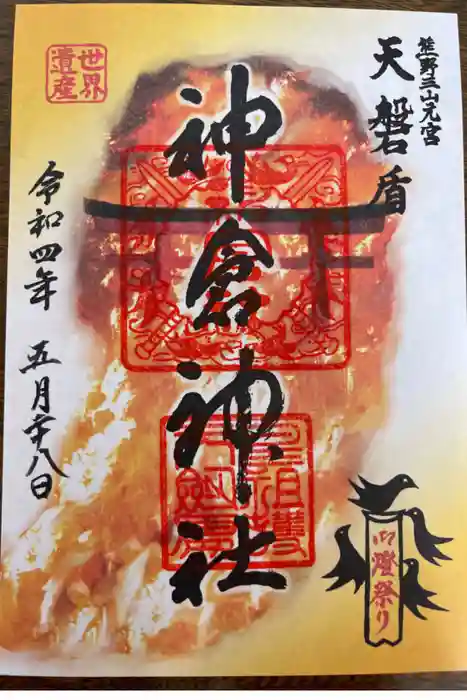 熊野三山元宮
天磐盾
神倉神社
世界
遺産
令和四年 五月廿八日
御燈祭り